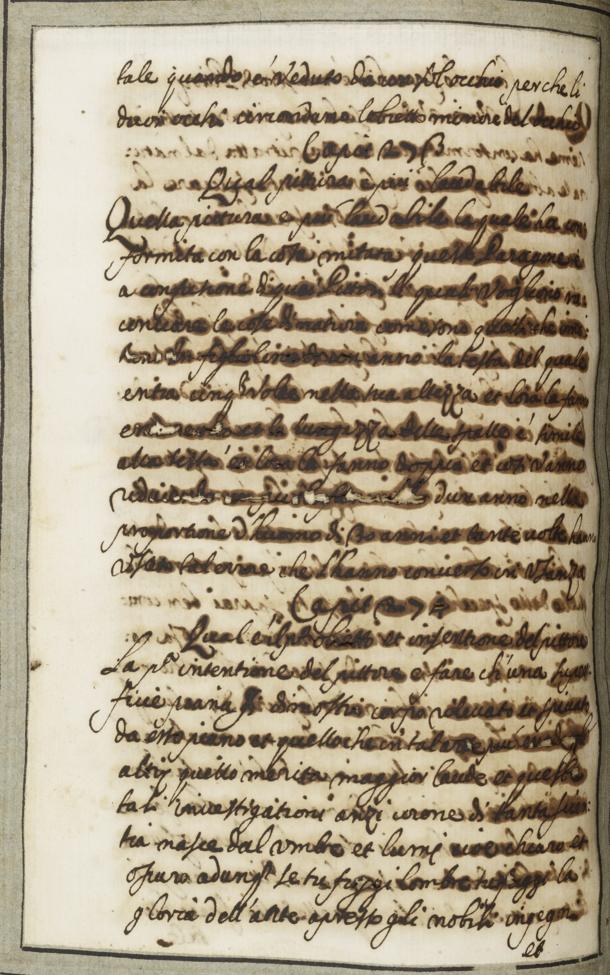 tale quando é veduto da un sol ochio perche li
duoi ochi circondano lobietto minore del ochio
Capit 273
Qual pittura è piu laudabile
Quella pittura e piu laudabile la quale ha con
formita con la cosa imitata questo Paragone è
a confusione di quei Pittori li quali vogliono ra:
conciare le cose di natura come sono quelli che imi:
un figliolino de un anno la testa del quale
entra cinq volte nella sua altezza et loro la fano
et la largezza delle spalle é simile
alla testa et loro la fanno doppia et cosi vanno
dun anno nella
proportione d huomo di 30 anni et tante uolte hanno
usato tal che l hanno converso in usanza
Capit 274
Qual é il p° obietto et intentione del pittore
La p.ª intentione del pittore e fare ch una super
ficie piana si dimostri corpo rilevato et spicato
da esso piano et quello che in tal arte piu
altri quello merita maggior laude et queste
tali investigationi anzi corone di tanta scien
tia nasce dal umbre et lumi o voi chiaro et
oscuro adunq se tu fuggi lombre tu fuggi la
gloria dell'arte apresso gli nobili ingegni
et